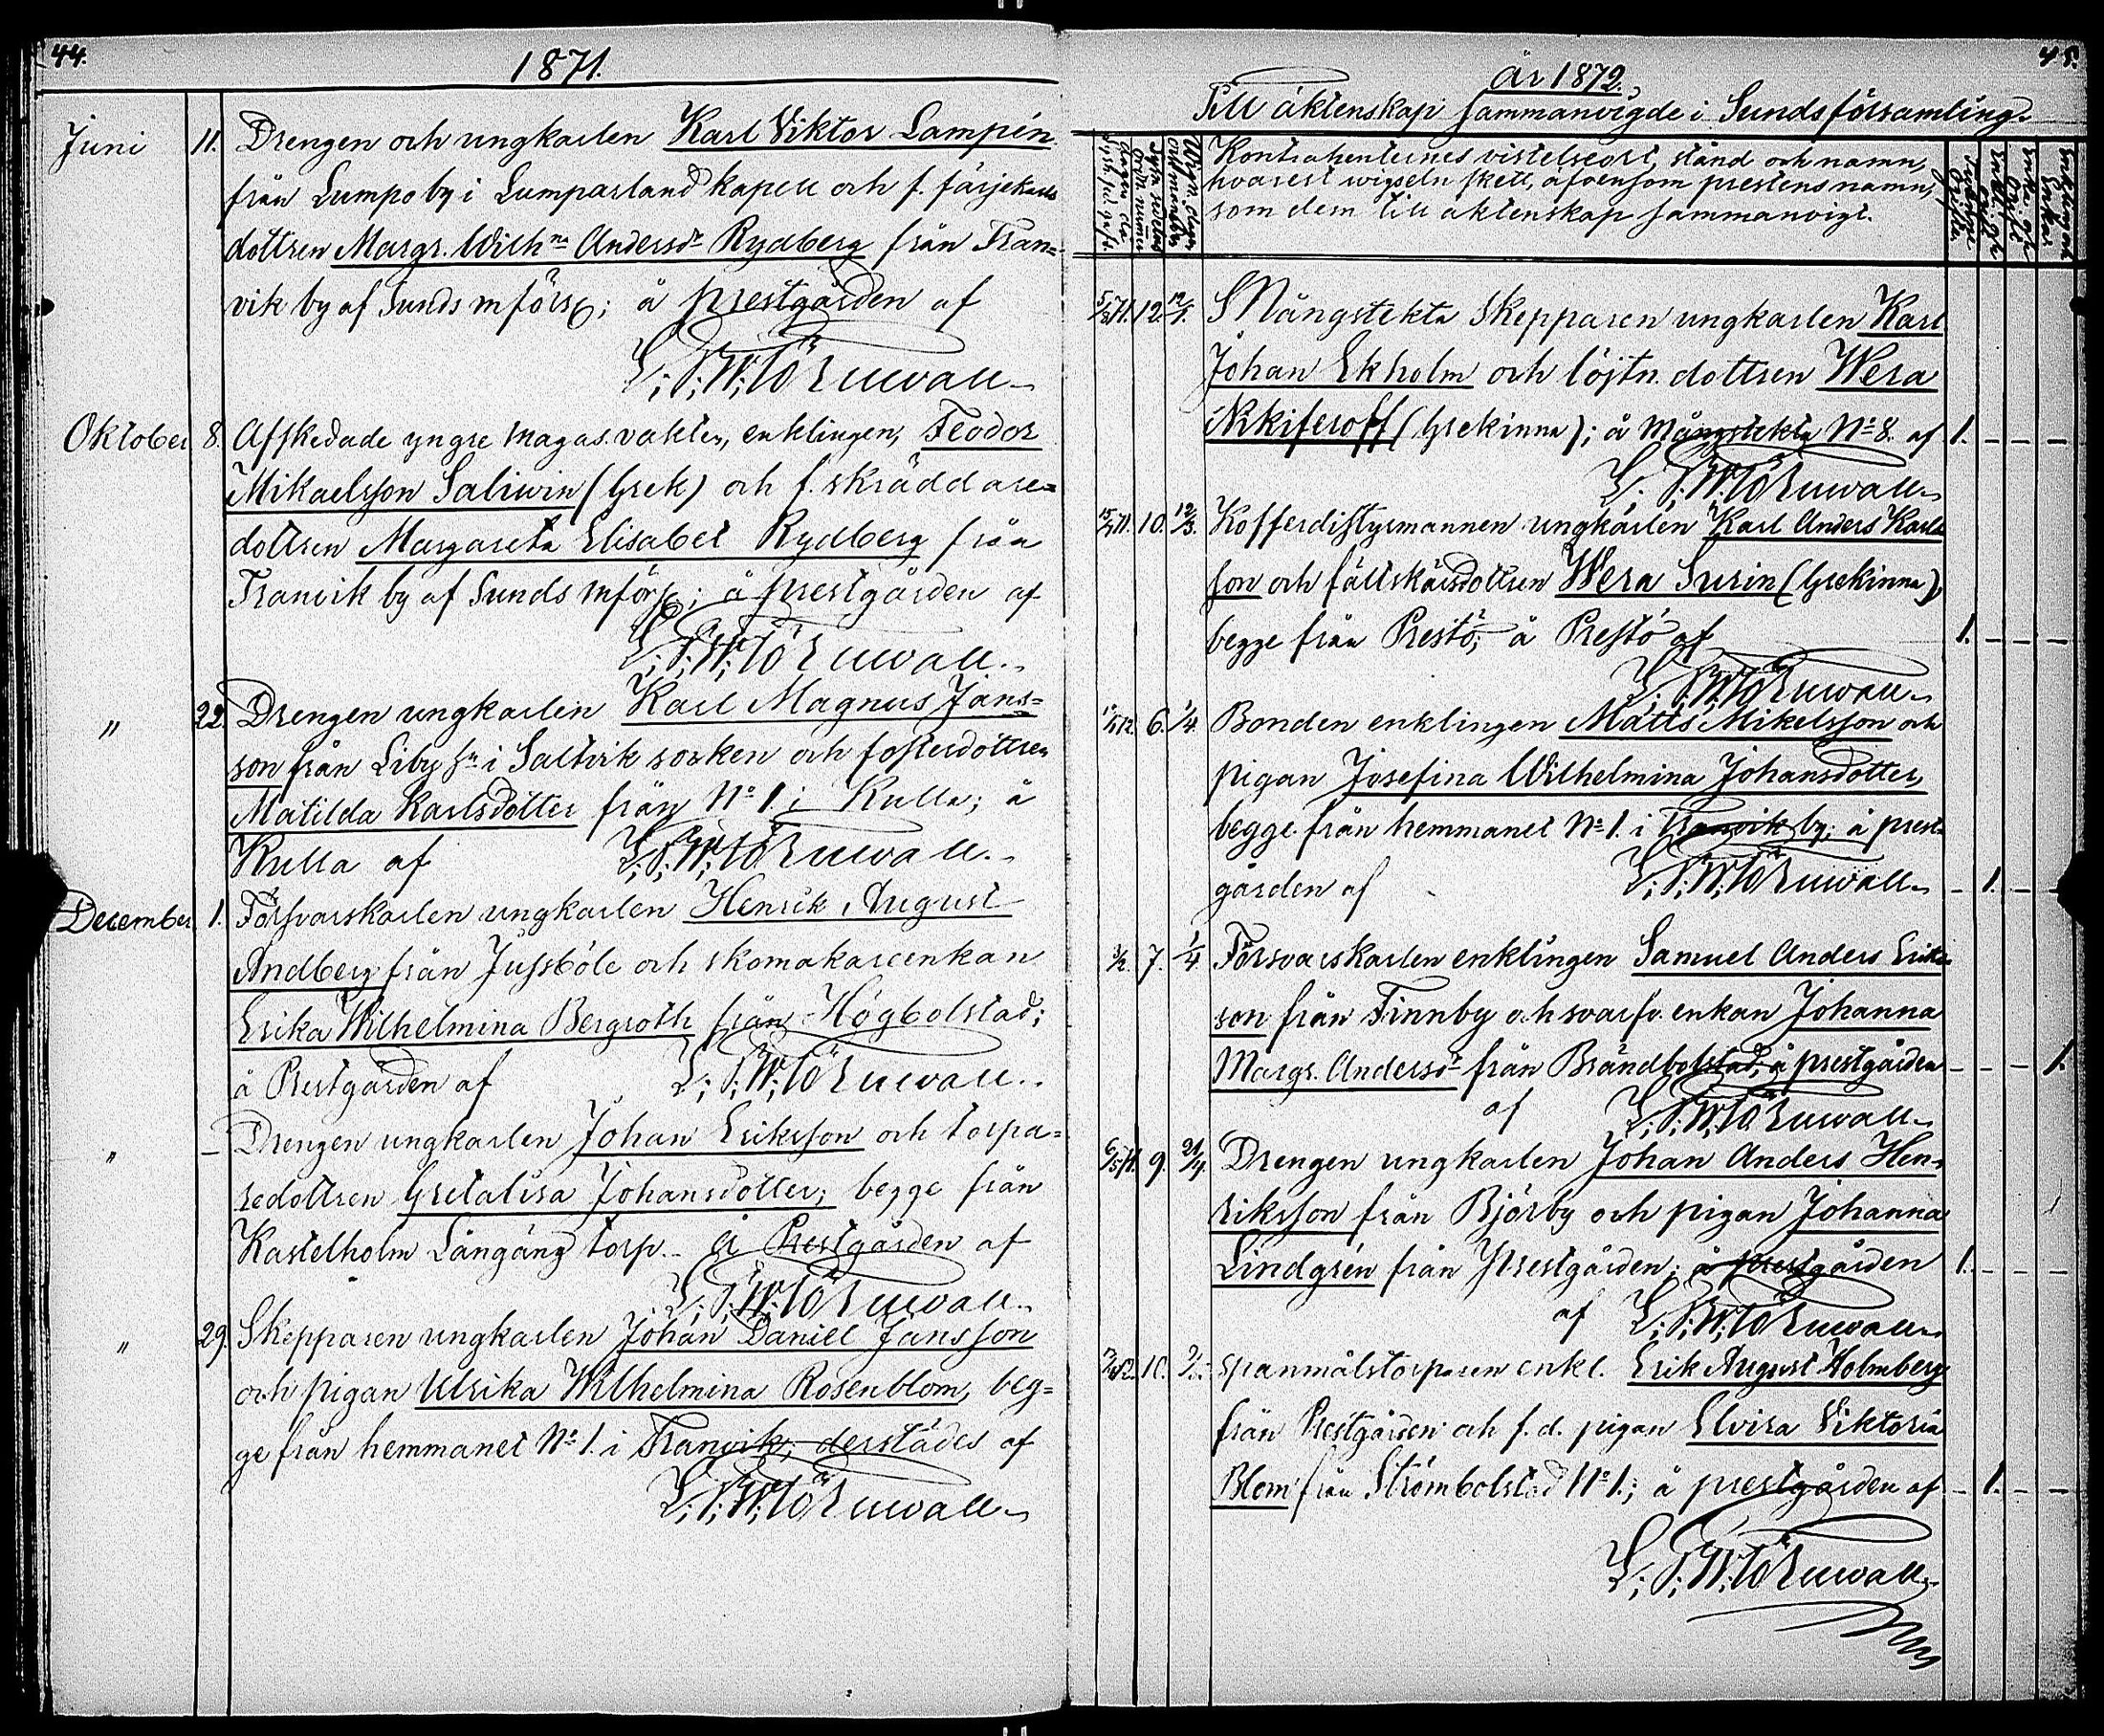 44.
1871.
Juni 11. Drengen och ungkarlen Karl Viktor Lampén
från Lumpo by i Lumparland kapell och f. färjekarls
dottren Margr. Wilhna Andersdr Rydberg från Tran=
vik by af Sunds mförs; å prestgården af
Oktober 8. Afskedade yngre magas.vakten, enklingen, Feodor
Mikaelsson Saliwin (Grek) och f. skräddare=
dottren Margareta Elisabet Rydberg från
Tranvik by af Sunds mförs; å prestgården af
" 22. Drengen ungkarlen Karl Magnus Jans=
son från Liby i Saltvik socken och fosterdottren
Matilda Karlsdotter från No 1. i Kulla; å
Kulla af
December 1. Försvarskarlen ungkarlen Henrik August
Andberg från Jussböle och skomakareenkan
Erika Wilhelmina Bergroth från Högbolstad;
å Prestgården af
" – Drengen ungkarlen Johan Eriksson och torpa=
redottren Gretalisa Johansdotter; begge från
Kastelholm Långäng torp. å Prestgården af
" 29. Skepparen ungkarlen Johan Daniel Jansson
och pigan Ulrika Wilhelmina Rosenblom, beg=
ge från hemmanet No 1. i Tranvik; derstädes af
45.
år 1872.
Till äktenskap sammanvigde i Sunds församling.
Kontrahenternes vistelseort, stånd och namn,
hvarest vigseln skett, äfvensom prestens namn,
som dem till äktenskap sammanvigt.
12. Mångstekta Skepparen ungkarlen Karl
Johan Ekholm och löjtn. dottren Wera
Nikiferoff (Grekinna); å Mångstekta No 8. af 1. – – –
10. Kofferdistyrmannen ungkarlen Karl Anders Karls
son och fältskärsdottren Wera Surin (Grekinna)
begge från Prestö; å Prestö af 1. – – –
6. 1/4. Bonden enklingen Matts Mikelsson och
pigan Josefina Wilhelmina Johansdotter,
begge från hemmanet No 1. i Tranvik by; å prest-
gården af – 1. – –
7. 1/4 Försvarskarlen enklingen Samuel Anders Eriks
son från Finnby och svarfv. enkan Johanna
Margr. Andersdr från Brändbolstad; å prestgården – – – 1.
af
9. 21/4. Drengen ungkarlen Johan Anders Hen-
riksson från Björby och pigan Johanna
Lindgrén från Prestgården; å prestgården 1. – – –
af
10. Spanmålstorparen enkl. Erik August Holmberg
från Prestgården och f. d. pigan Elvira Viktoria
Blom från Strömbolstad No 1.; å prestgården af – 1. – –